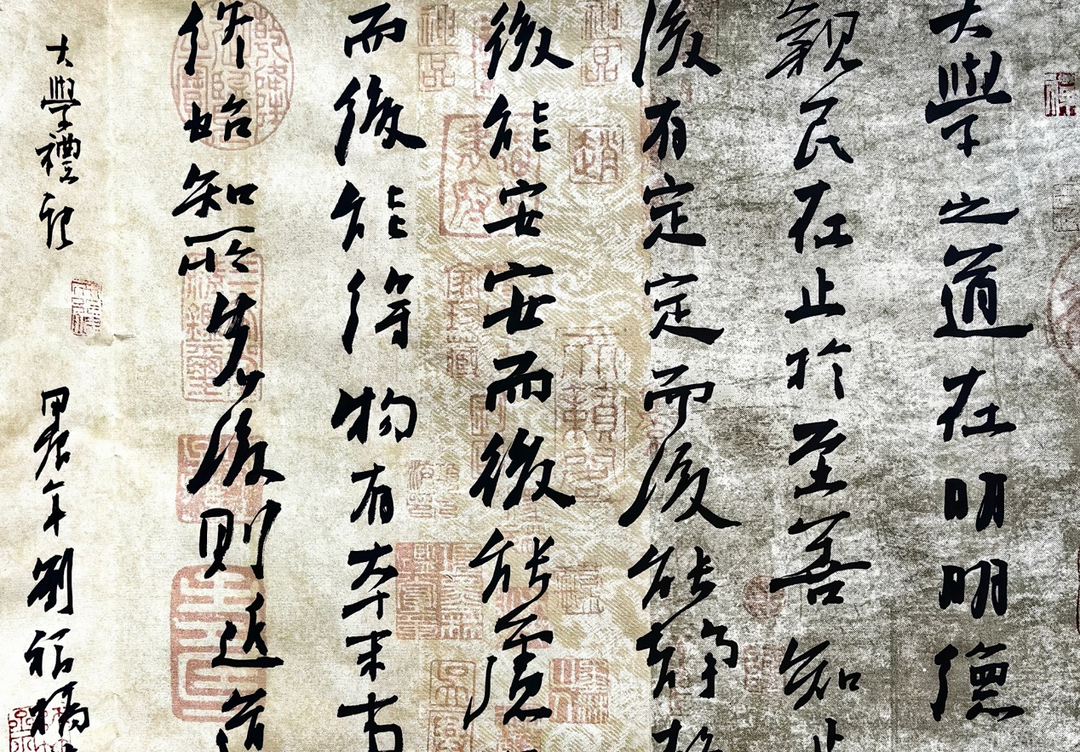 大學之道在明明德
親民在止於至善知止
後有定定而後能靜
後能安安而後能慮
而後能得物有本末
終始知所先後則近道
大學禮記
甲辰年劉福
神品
神品
趙